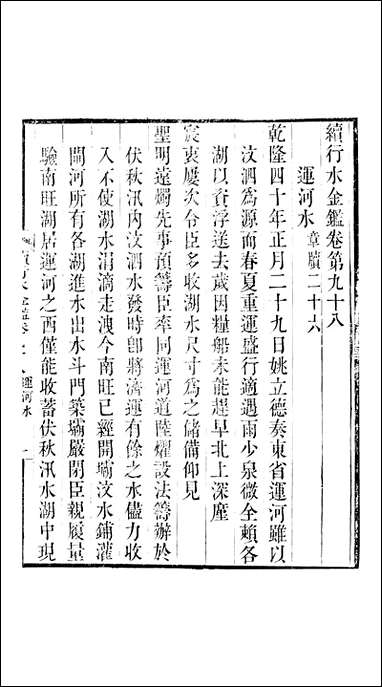 續行水金鑑卷第九十八
運河水 章牘二十六
乾隆四十年正月二十九日姚立德奏東省運河雖以
汶泗為源而春夏重運盛行適遇雨少泉微全賴各
湖以資浮送去歲因糧船未能趕早北上深廑
宸衷屢次令臣多收湖水尺寸為之儲備仰見
聖明遠燭先事預籌臣率同運河道陸燿設法籌辦於
伏秋汛內汶泗水發時卽將濟運有餘之水儘力收
入不使湖水涓滴走洩今南旺已經開壩汶水鋪灌
閘河所有各湖進水出水斗門築壩嚴閉臣親履量
驗南旺湖居運河之西僅能收蓄伏秋汛水湖中現
運河水 一